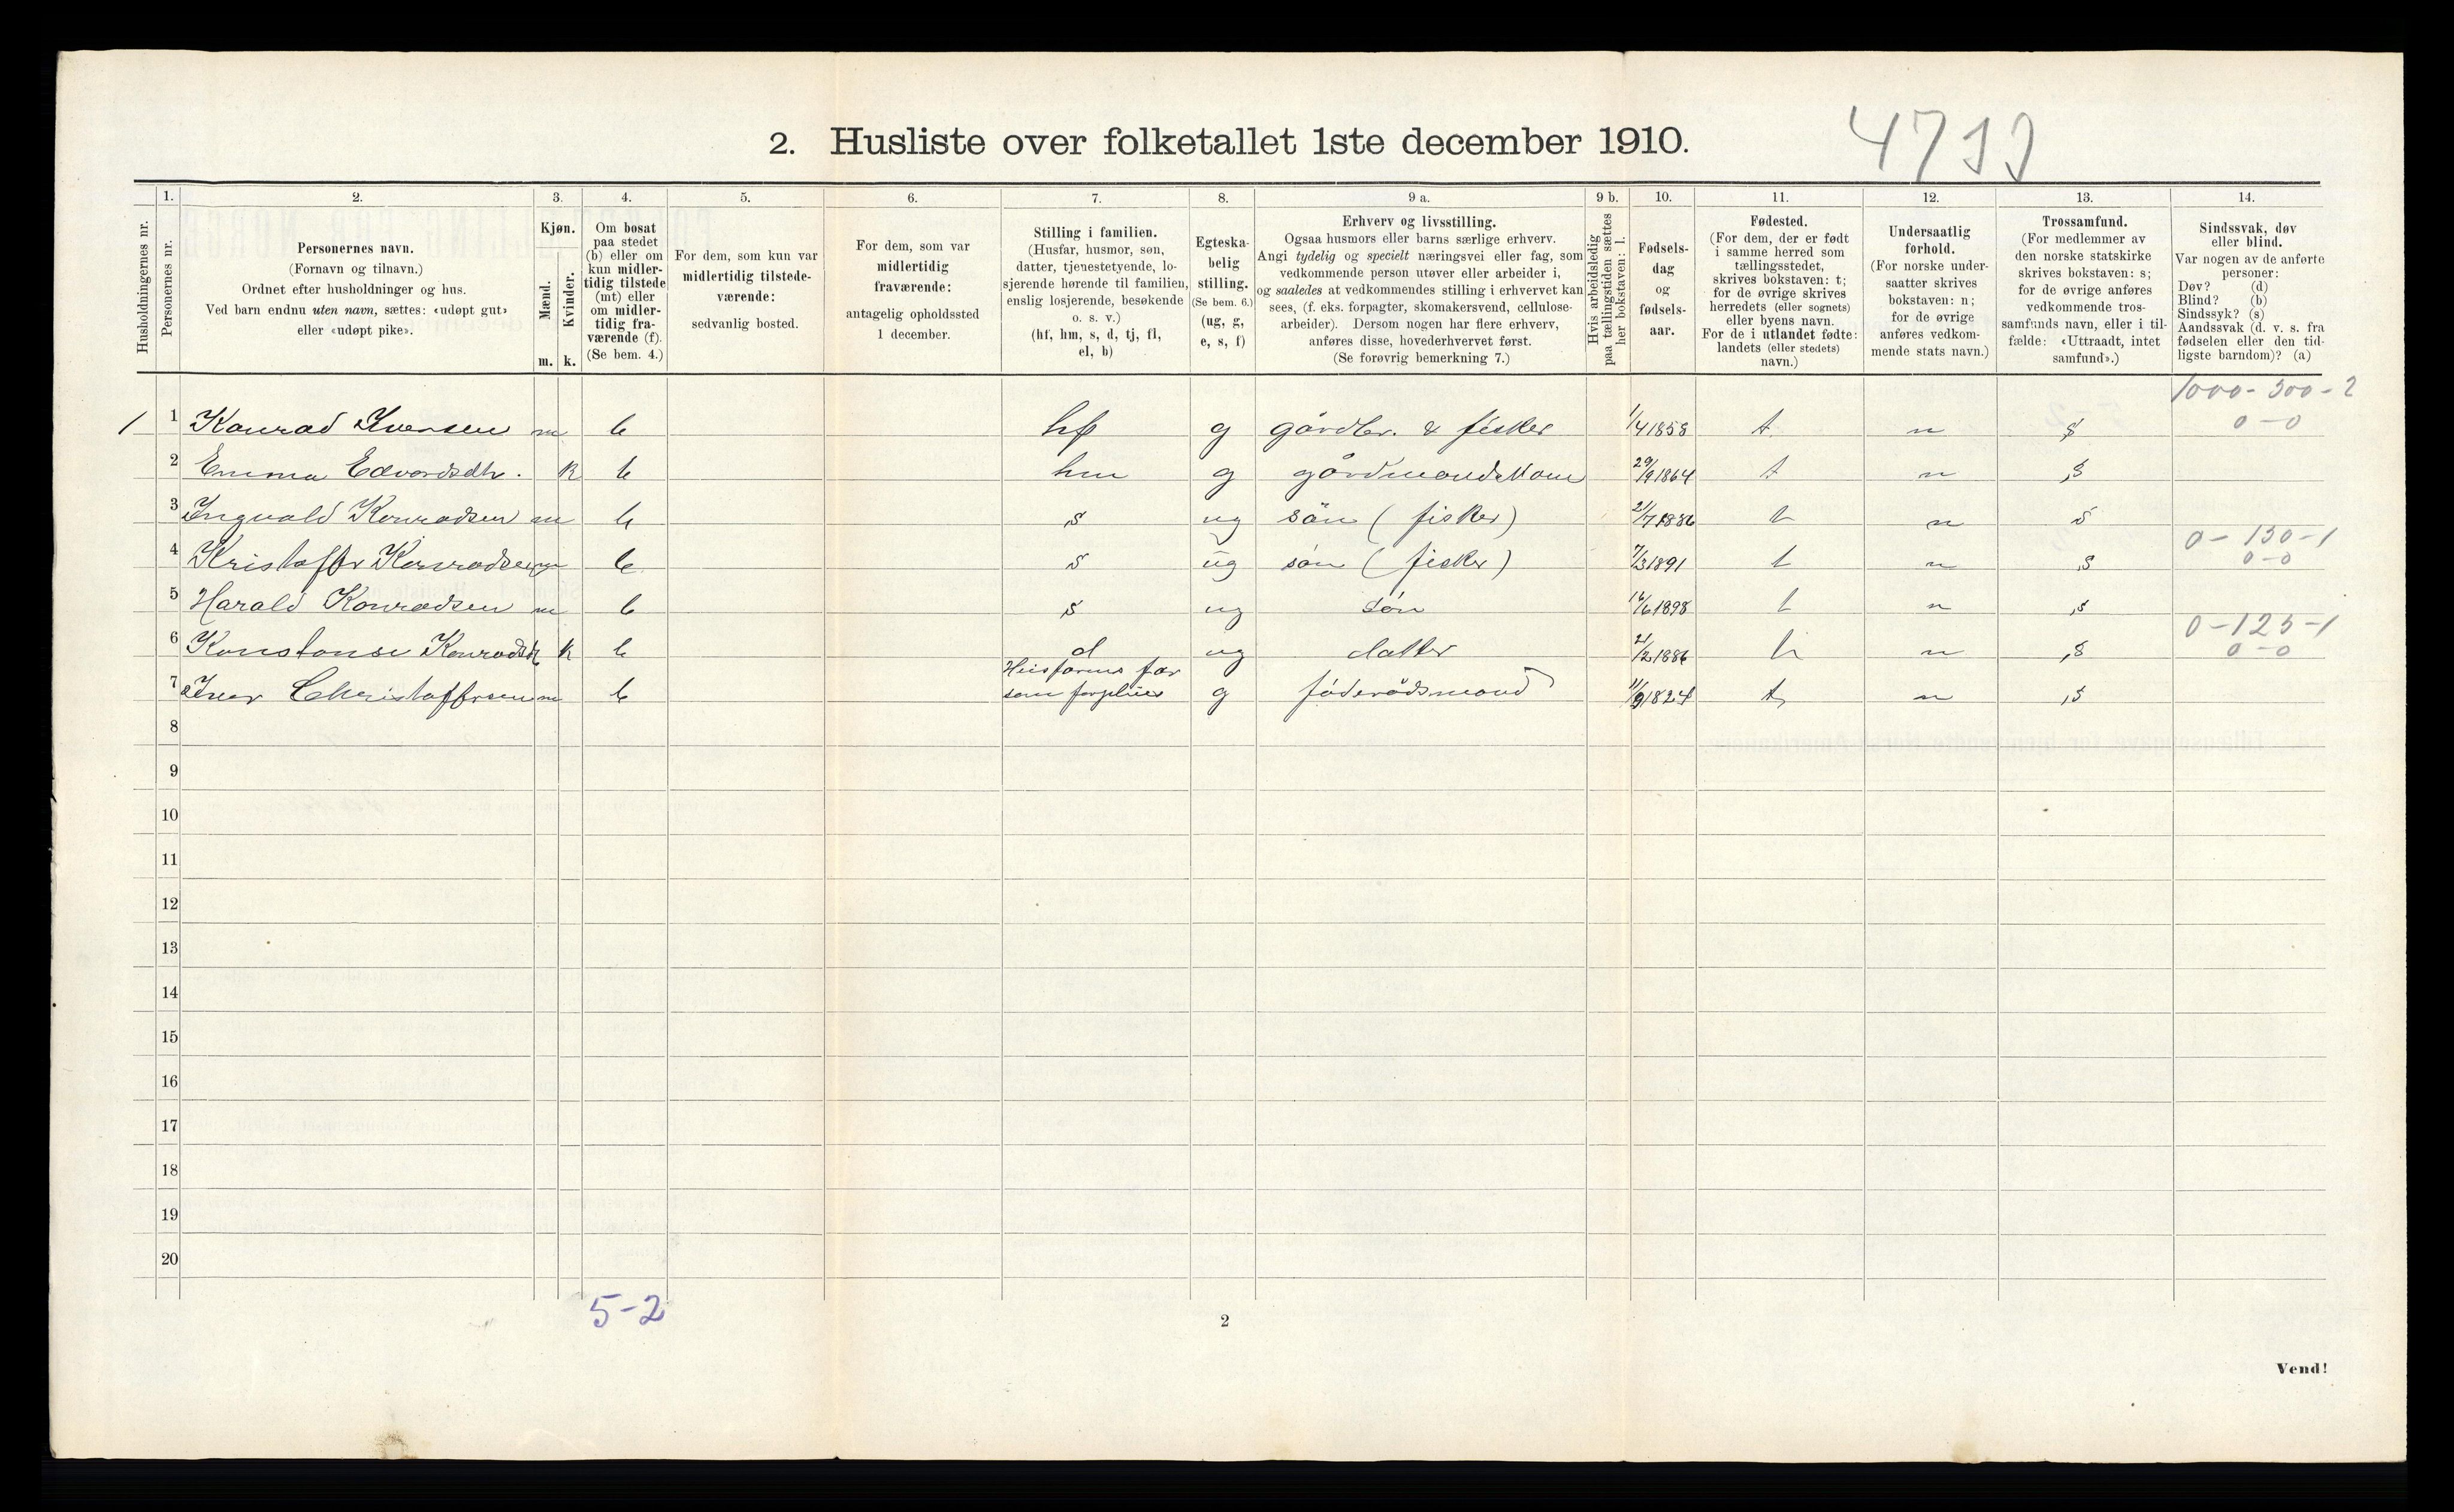 2. Husliste over folketallet 1ste december 1910.
Husholdningernes nr.
1.
Personernes nr.
2.
Personernes navn.
(Fornavn og tilnavn.)
Ordnet efter husholdninger og hus.
Ved barn endnu uten navn, sættes: «udøpt gut»
eller «udøpt pike».
3.
Kjøn.
Mænd.
m.
Kvinder.
k.
4.
Om bosat
paa stedet
(b) eller om
kun midler-
tidig tilstede
(mt) eller
om midler-
tidig fra-
værende (f).
(Se bem. 4.)
5.
For dem, som kun var
midlertidig tilstede-
værende:
sedvanlig bosted.
6.
For dem, som var
midlertidig
fraværende:
antagelig opholdssted
1 december.
7.
Stilling i familien.
(Husfar, husmor, søn,
datter, tjenestetyende, lo-
sjerende hørende til familien,
enslig losjerende, besøkende
o. s. v.)
(hf, hm, s, d, tj, fl,
el, b)
8.
Egteska-
belig
stilling.
(Se bem. 6.)
(ug, g,
e, s, f)
9 a.
Erhverv og livsstilling.
Ogsaa husmors eller barns særlige erhverv.
Angi tydelig og specielt næringsvei eller fag, som
vedkommende person utøver eller arbeider i,
og saaledes at vedkommendes stilling i erhvervet kan
sees, (f. eks. forpagter, skomakersvend, cellulose-
arbeider). Dersom nogen har flere erhverv,
anføres disse, hovederhvervet først.
(Se forøvrig bemerkning 7.)
9 b.
Hvis arbeidsledig
paa tællingstiden sættes
her bokstaven: l.
10.
Fødsels-
dag
og
fødsels-
aar.
11.
Fødested.
(For dem, der er født
i samme herred som
tællingsstedet,
skrives bokstaven: t;
for de øvrige skrives
herredets (eller sognets)
eller byens navn.
For de i utlandet fødte:
landets (eller stedets)
navn.)
12.
Undersaatlig
forhold.
(For norske under-
saatter skrives
bokstaven: n;
for de øvrige
anføres vedkom-
mende stats navn.)
13.
Trossamfund.
(For medlemmer av
den norske statskirke
skrives bokstaven: s;
for de øvrige anføres
vedkommende tros-
samfunds navn, eller i til-
fælde: «Uttraadt, intet
samfund».)
14.
Sindssvak, døv
eller blind.
Var nogen av de anførte
personer:
Døv? (d)
Blind? (b)
Sindssyk? (s)
Aandssvak (d. v. s. fra
fødselen eller den tid-
ligste barndom)? (a)
1000-300-2
1 1 Konrad Iversen m b hf g gårdbr. & fisker 1/4 1858 t n s 0-0
2 Emma Edvardsdtr. k b hm g gårdmandskone 29/9 1864 t n s
3 Ingvald Konradsen m b s ug sön (fisker) 21/7 1886 t n s
0-130-1
4 Kristoffer Konradsen m b s ug sön (fisker) 7/3 1891 t n s 0-0
5 Harald Konradsen m b s ug sön 16/6 1898 t n s
0-125-1
6 Konstanse Konradsdt k b d ug datter 2/2 1886 t n s 0-0
Husfarens far
7 Iver Christoffersen m b som forpleies g föderådsmand 11/9 1824 t n s
8
9
10
11
12
13
14
15
16
17
18
19
20
5-2
2
Vend!